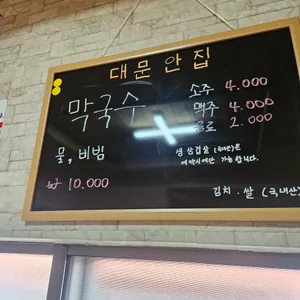 대문안집
막국수
소주 4.000
맥주 4.000
음료 2.000
물, 비빔
₩ 10.000
생삼겹살 (국내산)은
예약시에만 가능합니다.
김치. 쌀 (국내산)